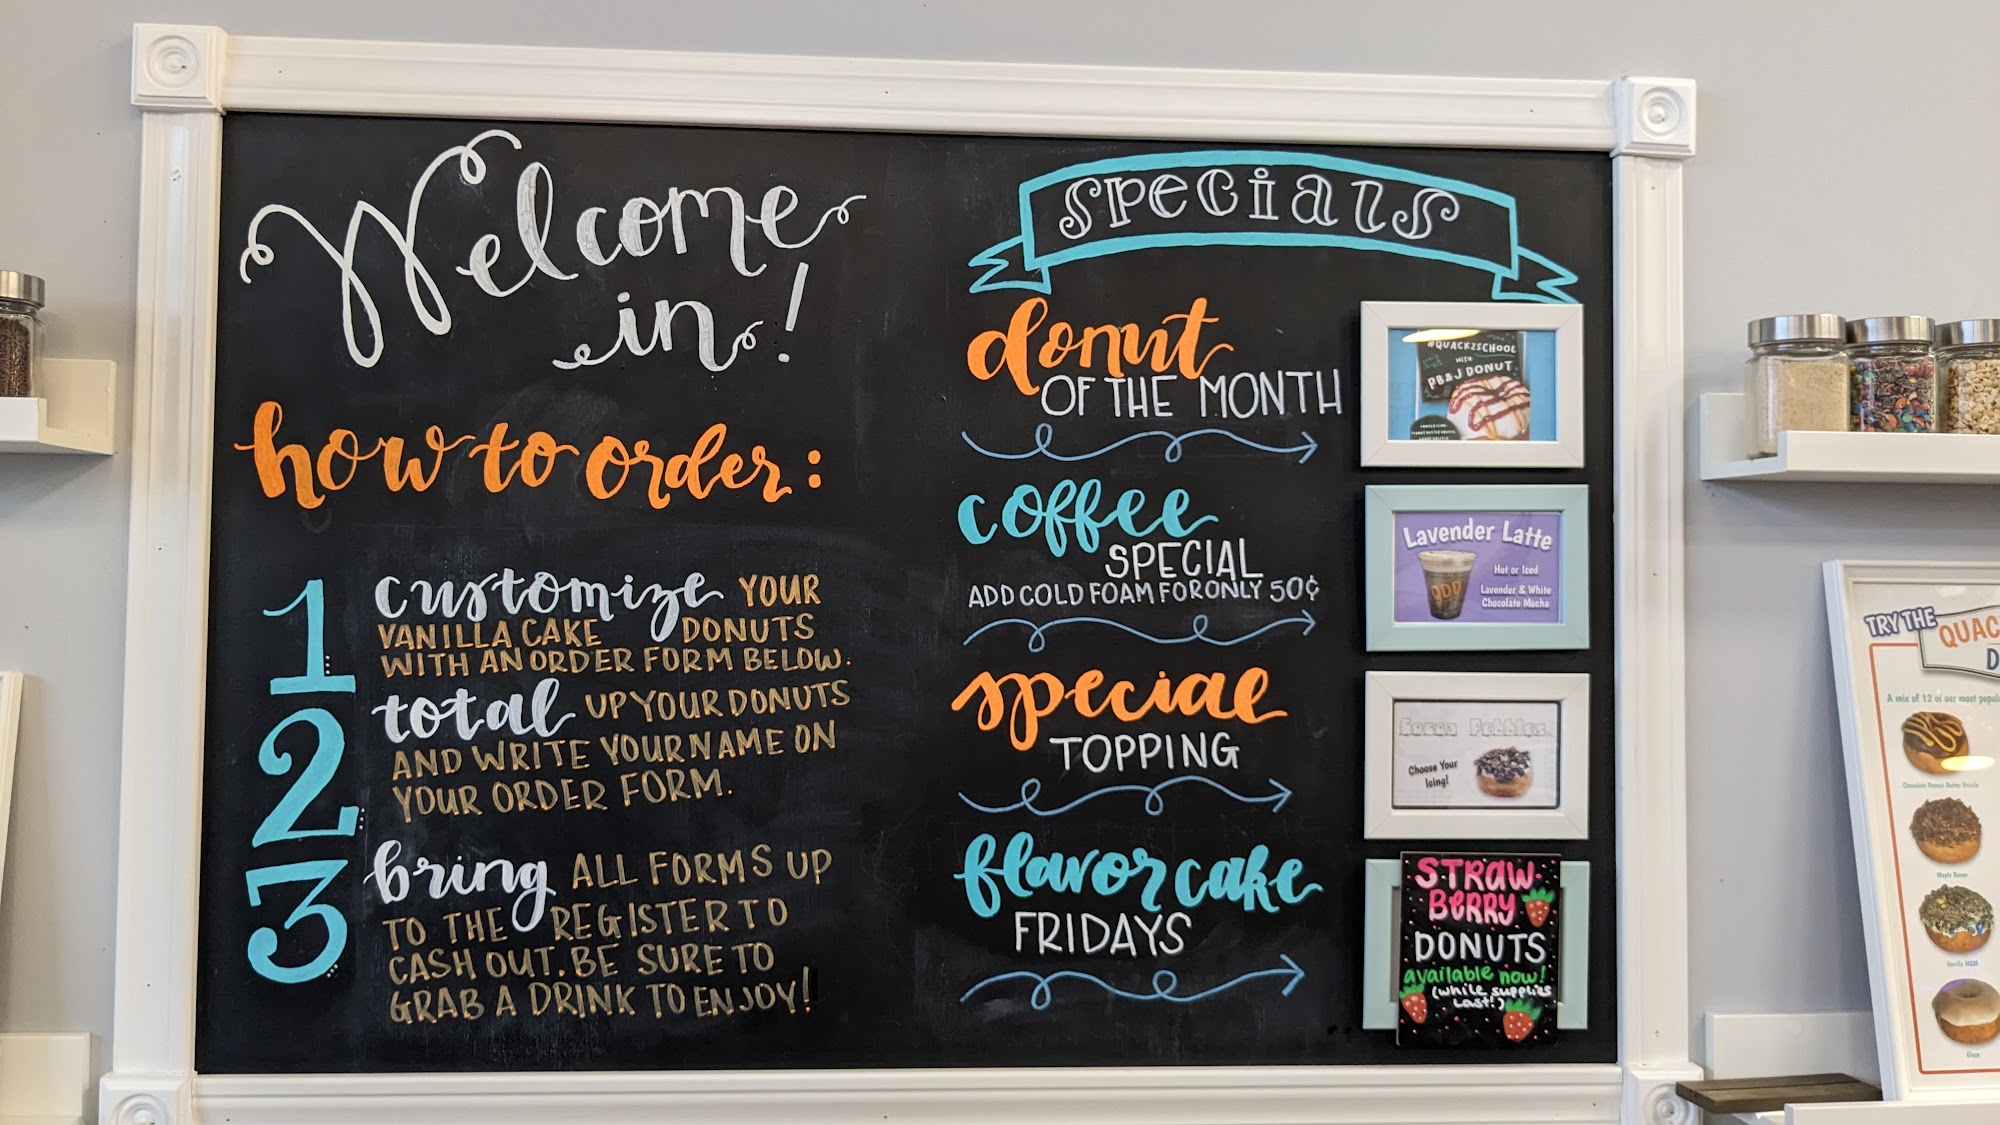 Welcome
in!
how to order:
1 customize YOUR
VANILLA CAKE DONUTS
WITH AN ORDER FORM BELOW.
2 total UP YOUR DONUTS
AND WRITE YOUR NAME ON
YOUR ORDER FORM.
3 bring ALL FORMS UP
TO THE REGISTER TO
CASH OUT. BE SURE TO
GRAB A DRINK TO ENJOY!
SPECIALS
donut
OF THE MONTH
#QUACK2SCHOOL
WITH
PB&J DONUT
coffee
SPECIAL
ADD COLD FOAM FOR ONLY 50¢
Lavender Latte
Hot or Iced
Lavender & White
Chocolate Mocha
special
TOPPING
Cocoa Pebbles
Choose Your
Icing!
flavor cake
FRIDAYS
STRAW-
BERRY
DONUTS
available now!
(while supplies
last!)
TRY THE
QUAC
D
A mix of 12 of our most popul
Chocolate Peanut Butter Drizzle
Maple Bacon
Vanilla M&M
Glaze